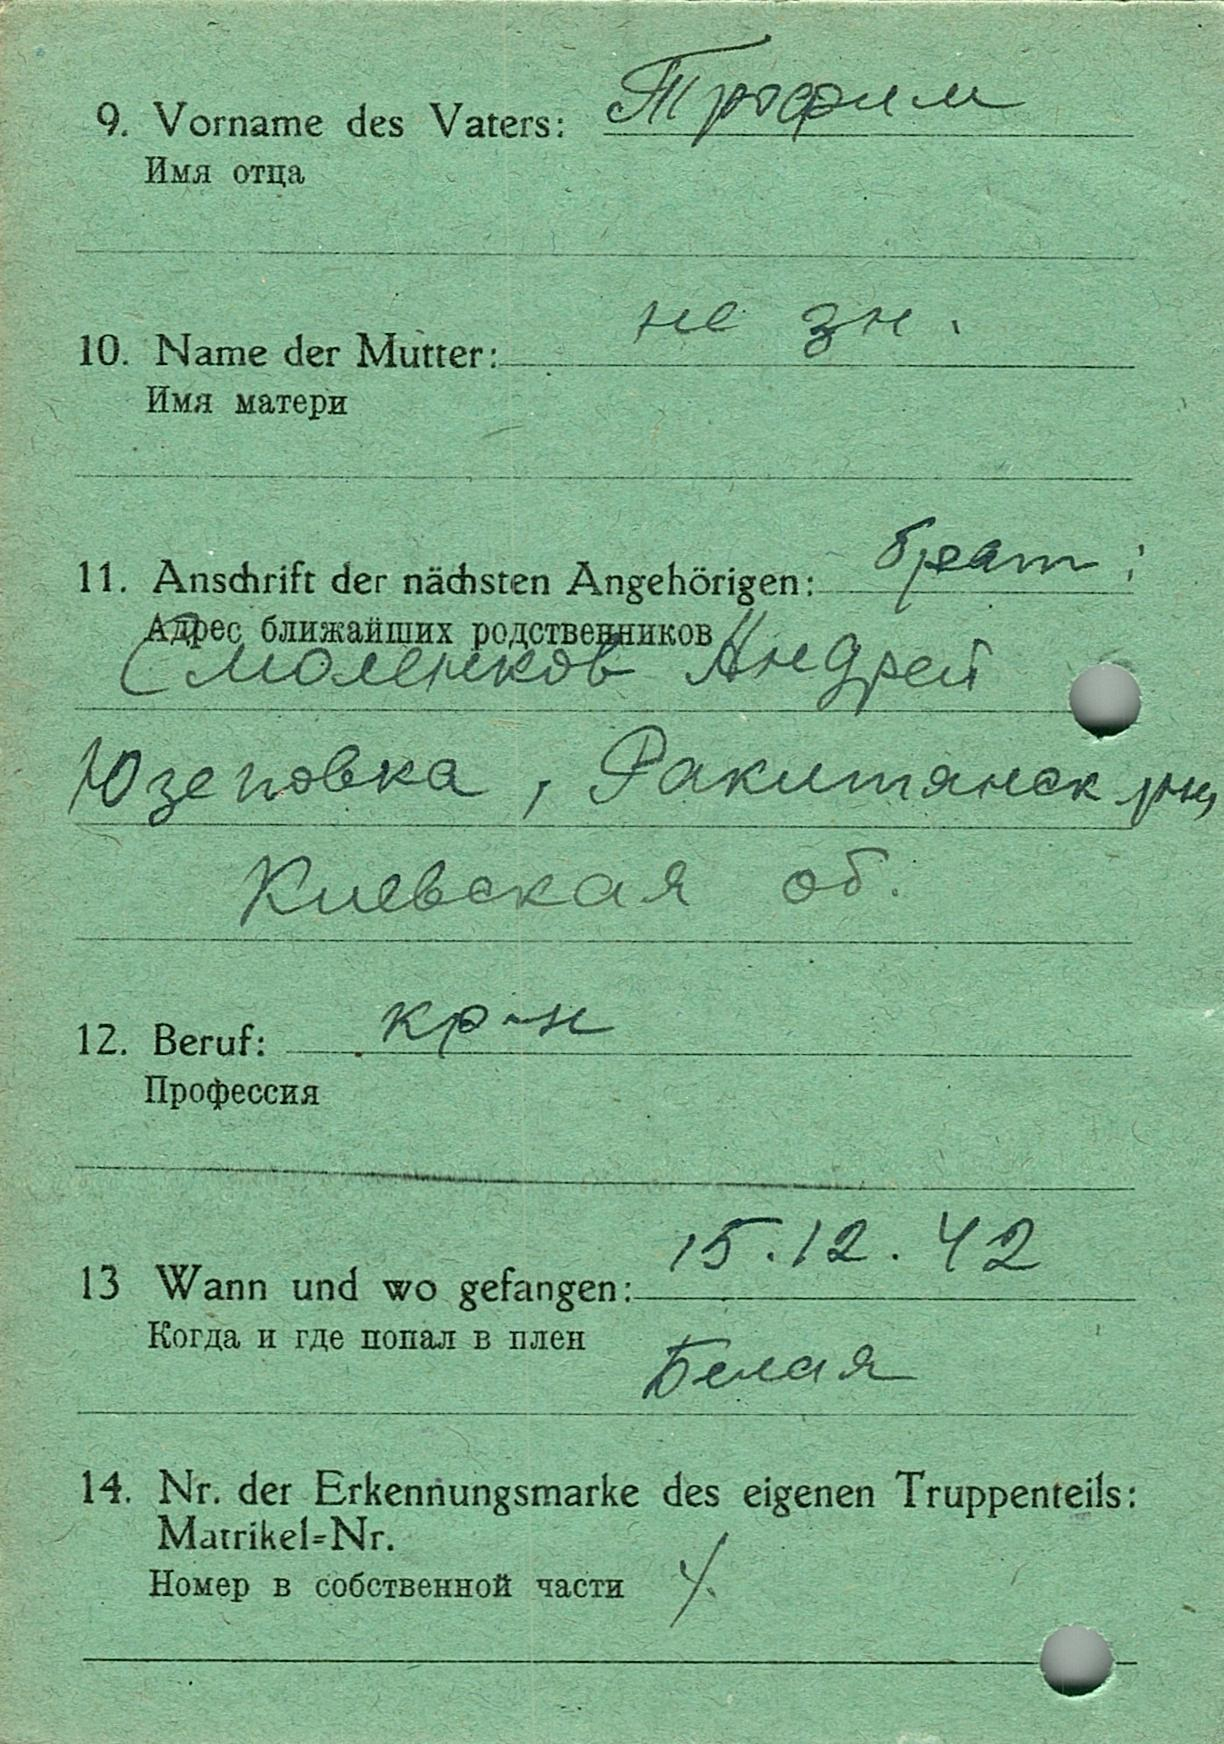 9. Vorname des Vaters: Трофим
Имя отца
10. Name der Mutter: не зн.
Имя матери
11. Anschrift der nächsten Angehörigen: брат:
Адрес ближайших родственников
Смоленков Андрей
Юзеповка, Ракитянск рн,
Киевская об.
12. Beruf: кр-н
Профессия
13 Wann und wo gefangen: 15.12.42
Когда и где попал в плен
Белая
14. Nr. der Erkennungsmarke des eigenen Truppenteils:
Matrikel=Nr.
Номер в собственной части